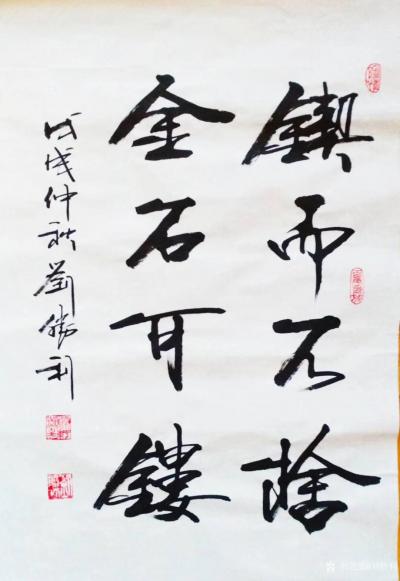 鍥而不捨
金石可鏤
戊戌仲秋劉勝利